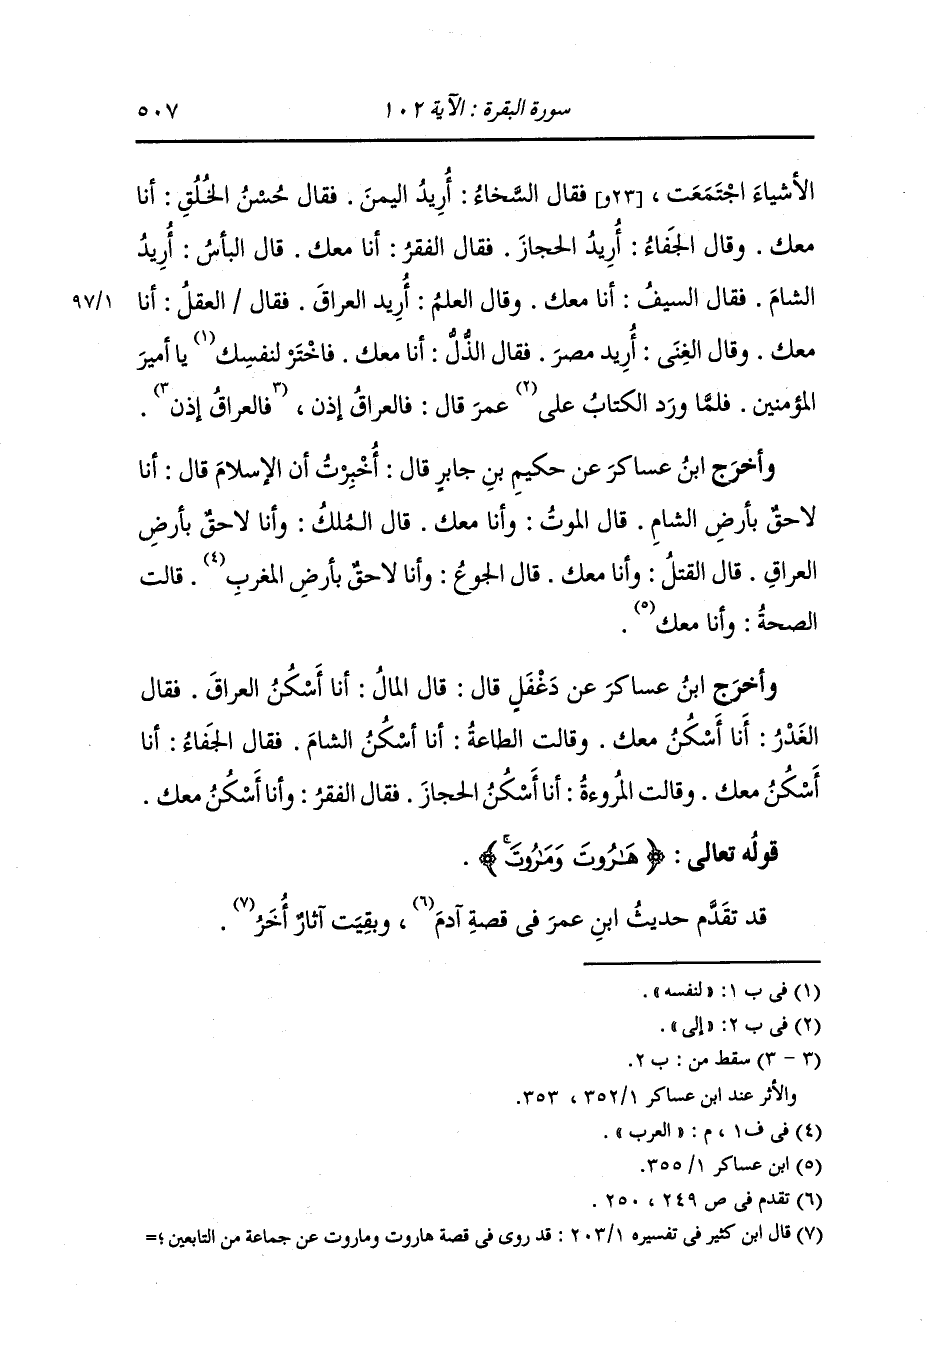 سورة البقرة : الآية ١٠٢ ٥٠٧
الأشياءَ اجْتَمَعَت ، [٢٣و] فقال السَّخاءُ : أُرِيدُ اليمنَ . فقال حُسْنُ الخُلُقِ : أنا
معك . وقال الجَفاءُ : أُرِيدُ الحجازَ . فقال الفقرُ : أنا معك . قال البأسُ : أُرِيدُ
الشامَ . فقال السيفُ : أنا معك . وقال العلمُ : أُرِيد العراقَ . فقال / العقلُ : أنا ٩٧/١
معك . وقال الغِنَى : أُرِيد مصرَ . فقال الذُّلُّ : أنا معك . فاخْتَرْ لنفسِك(١) يا أميرَ
المؤمنين . فلمَّا ورَد الكتابُ على(٢) عمرَ قال : فالعراقُ إذن ، (٣فالعراقُ إذن٣) .
وأخرَج ابنُ عساكرَ عن حكيمِ بنِ جابرٍ قال : أُخبِرْتُ أن الإسلامَ قال : أنا
لاحقٌ بأرضِ الشامِ . قال الموتُ : وأنا معك . قال المُلكُ : وأنا لاحقٌ بأرضِ
العراقِ . قال القتلُ : وأنا معك . قال الجوعُ : وأنا لاحقٌ بأرضِ المغربِ(٤) . قالت
الصحةُ : وأنا معك(٥) .
وأخرَج ابنُ عساكرَ عن دَغْفَلٍ قال : قال المالُ : أنا أَسْكُنُ العراقَ . فقال
الغَدْرُ : أَنا أَسْكُنُ معك . وقالت الطاعةُ : أنا أسْكُنُ الشامَ . فقال الجَفاءُ : أنا
أَسْكُنُ معك . وقالت المُروءةُ : أنا أَسْكُنُ الحجازَ . فقال الفقرُ : وأنا أَسْكُنُ معك .
قولُه تعالى : ﴿ هَٰرُوتَ وَمَٰرُوتَۚ ﴾ .
قد تقَدَّم حديثُ ابنِ عمرَ فى قصةِ آدمَ(٦) ، وبقِيَت آثارٌ أُخَرُ(٧) .
(١) فى ب ١: «لنفسه» .
(٢) فى ب ٢: «إلى» .
(٣ - ٣) سقط من : ب ٢.
والأثر عند ابن عساكر ٣٥٢/١ ، ٣٥٣.
(٤) فى ف١ ، م : « العرب» .
(٥) ابن عساكر ١/ ٣٥٥.
(٦) تقدم فى ص ٢٤٩ ، ٢٥٠ .
(٧) قال ابن كثير فى تفسيره ٢٠٣/١ : قد روى فى قصة هاروت وماروت عن جماعة من التابعين ؛=